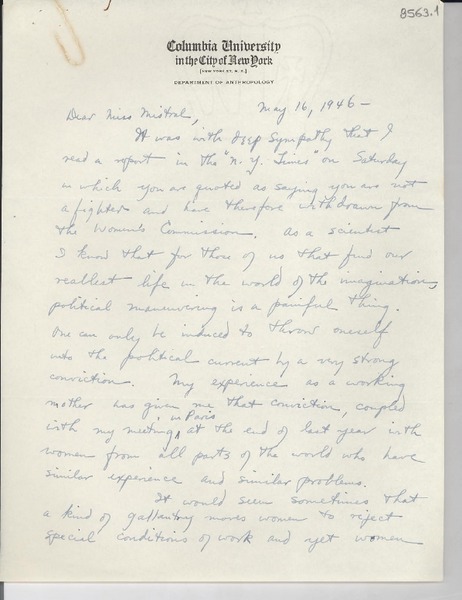 8563.1
Columbia University
in the City of New York
[NEW YORK 27, N. Y.]
DEPARTMENT OF ANTHROPOLOGY
May 16, 1946 -
Dear Miss Mistral,
It was with deep sympathy that I
read a report in the "N. Y. Times" on Saturday
in which you are quoted as saying you are not
a fighter and have therefore withdrawn from
the Women's Commission. As a scientist
I know that for those of us that find our
reallest life in the world of the imagination,
political maneuvering is a painful thing.
One can only be induced to throw oneself
into the political current by a very strong
conviction. My experience as a working
mother has given me that conviction, coupled
with my meeting, in Paris at the end of last year with
women from all parts of the world who have
similar experience and similar problems.
It would seem sometimes that
a kind of gallantry moves women to reject
special conditions of work and yet women